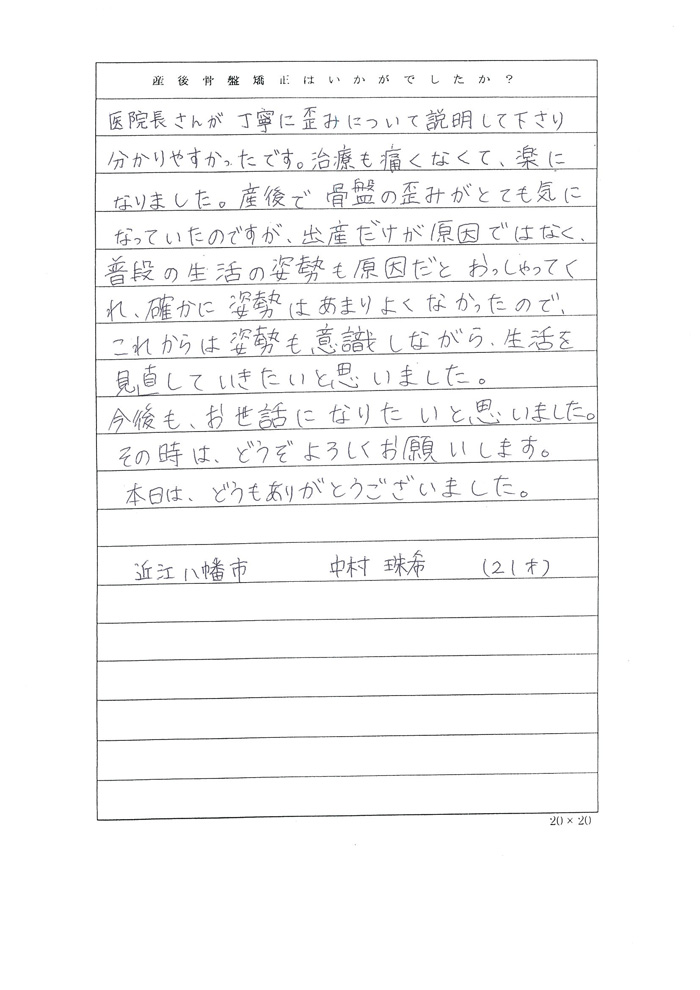 産後骨盤矯正はいかがでしたか？
医院長さんが丁寧に歪みについて説明して下さり
分かりやすかったです。治療も痛くなくて、楽に
なりました。産後で骨盤の歪みがとても気に
なっていたのですが、出産だけが原因ではなく、
普段の生活の姿勢も原因だとおっしゃってく
れ、確かに姿勢はあまりよくなかったので、
これからは姿勢も意識しながら、生活を
見直していきたいと思いました。
今後も、お世話になりたいと思いました。
その時は、どうぞよろしくお願いします。
本日は、どうもありがとうございました。
近江八幡市 中村 珠希 (21才)
20×20